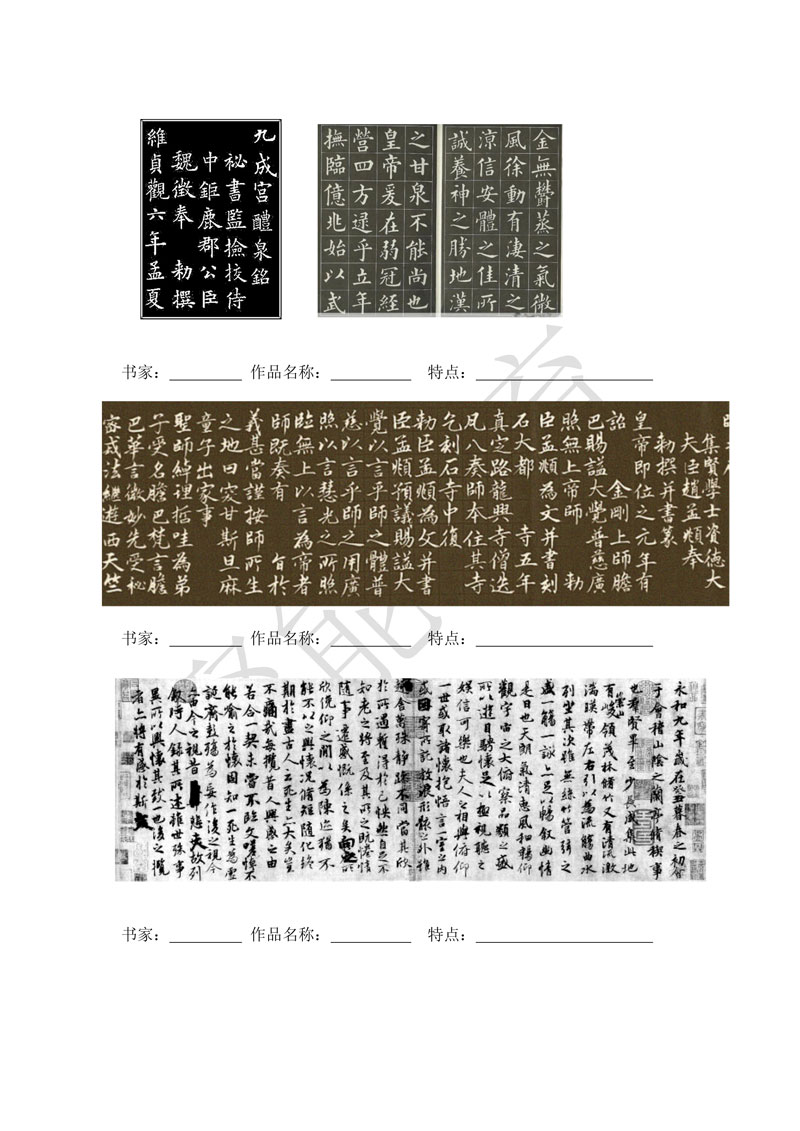 九成宮醴泉銘
祕書監撿挍侍
中鉅鹿郡公臣
魏徵奉 勅撰
維貞觀六年孟夏
金無欝蒸之氣微
風徐動有淒清之
涼信安體之佳所
誠養神之勝地漢
之甘泉不能尚也
皇帝爰在弱冠經
營四方逯乎立年
撫臨億兆始以武
书家： 作品名称： 特点：
集賢學士資德大
夫臣趙孟頫奉
勅撰并書篆
皇帝即位之元年有
詔 金剛上師膽
巴賜謚大覺普慈廣
照無上帝師 勅
臣孟頫為文并書刻
石大都 寺五年
真定路龍興寺僧迭
凡八奏師本住其寺
乞刻石寺中復
勅臣孟頫為文并書
臣孟頫預議賜謚大
覺以言乎師之體普
慈以言乎師之用廣
照以言慧光之所照
臨無上以言為帝者
師既奏有 旨於
義甚當謹按師所生
之地曰突甘斯旦麻
童子出家事
聖師綽理哲哇為弟
子受名膽巴梵言膽
巴華言微妙先受秘
密戒法繼遊西天竺
书家： 作品名称： 特点：
永和九年歲在癸丑暮春之初會
于會稽山陰之蘭亭脩稧事
也羣賢畢至少長咸集此地
有崇山峻領茂林脩竹又有清流激
湍暎帶左右引以為流觴曲水
列坐其次雖無絲竹管弦之
盛一觴一詠亦足以暢敘幽情
是日也天朗氣清惠風和暢仰
觀宇宙之大俯察品類之盛
所以遊目騁懷足以極視聽之
娛信可樂也夫人之相與俯仰
一世或取諸懷抱悟言一室之內
或因寄所託放浪形骸之外雖
趣舍萬殊靜躁不同當其欣
於所遇蹔得於己怏然自足不
知老之將至及其所之既惓情
隨事遷感慨係之矣向之所
欣俛仰之間以為陳迹猶不
能不以之興懷況脩短隨化終
期於盡古人云死生亦大矣豈
不痛哉每攬昔人興感之由
若合一契未嘗不臨文嗟悼不
能喻之於懷固知一死生為虛
誕齊彭殤為妄作後之視今
亦由今之視昔悲夫故列
敘時人錄其所述雖世殊事
異所以興懷其致一也後之攬
者亦將有感於斯文
书家： 作品名称： 特点：